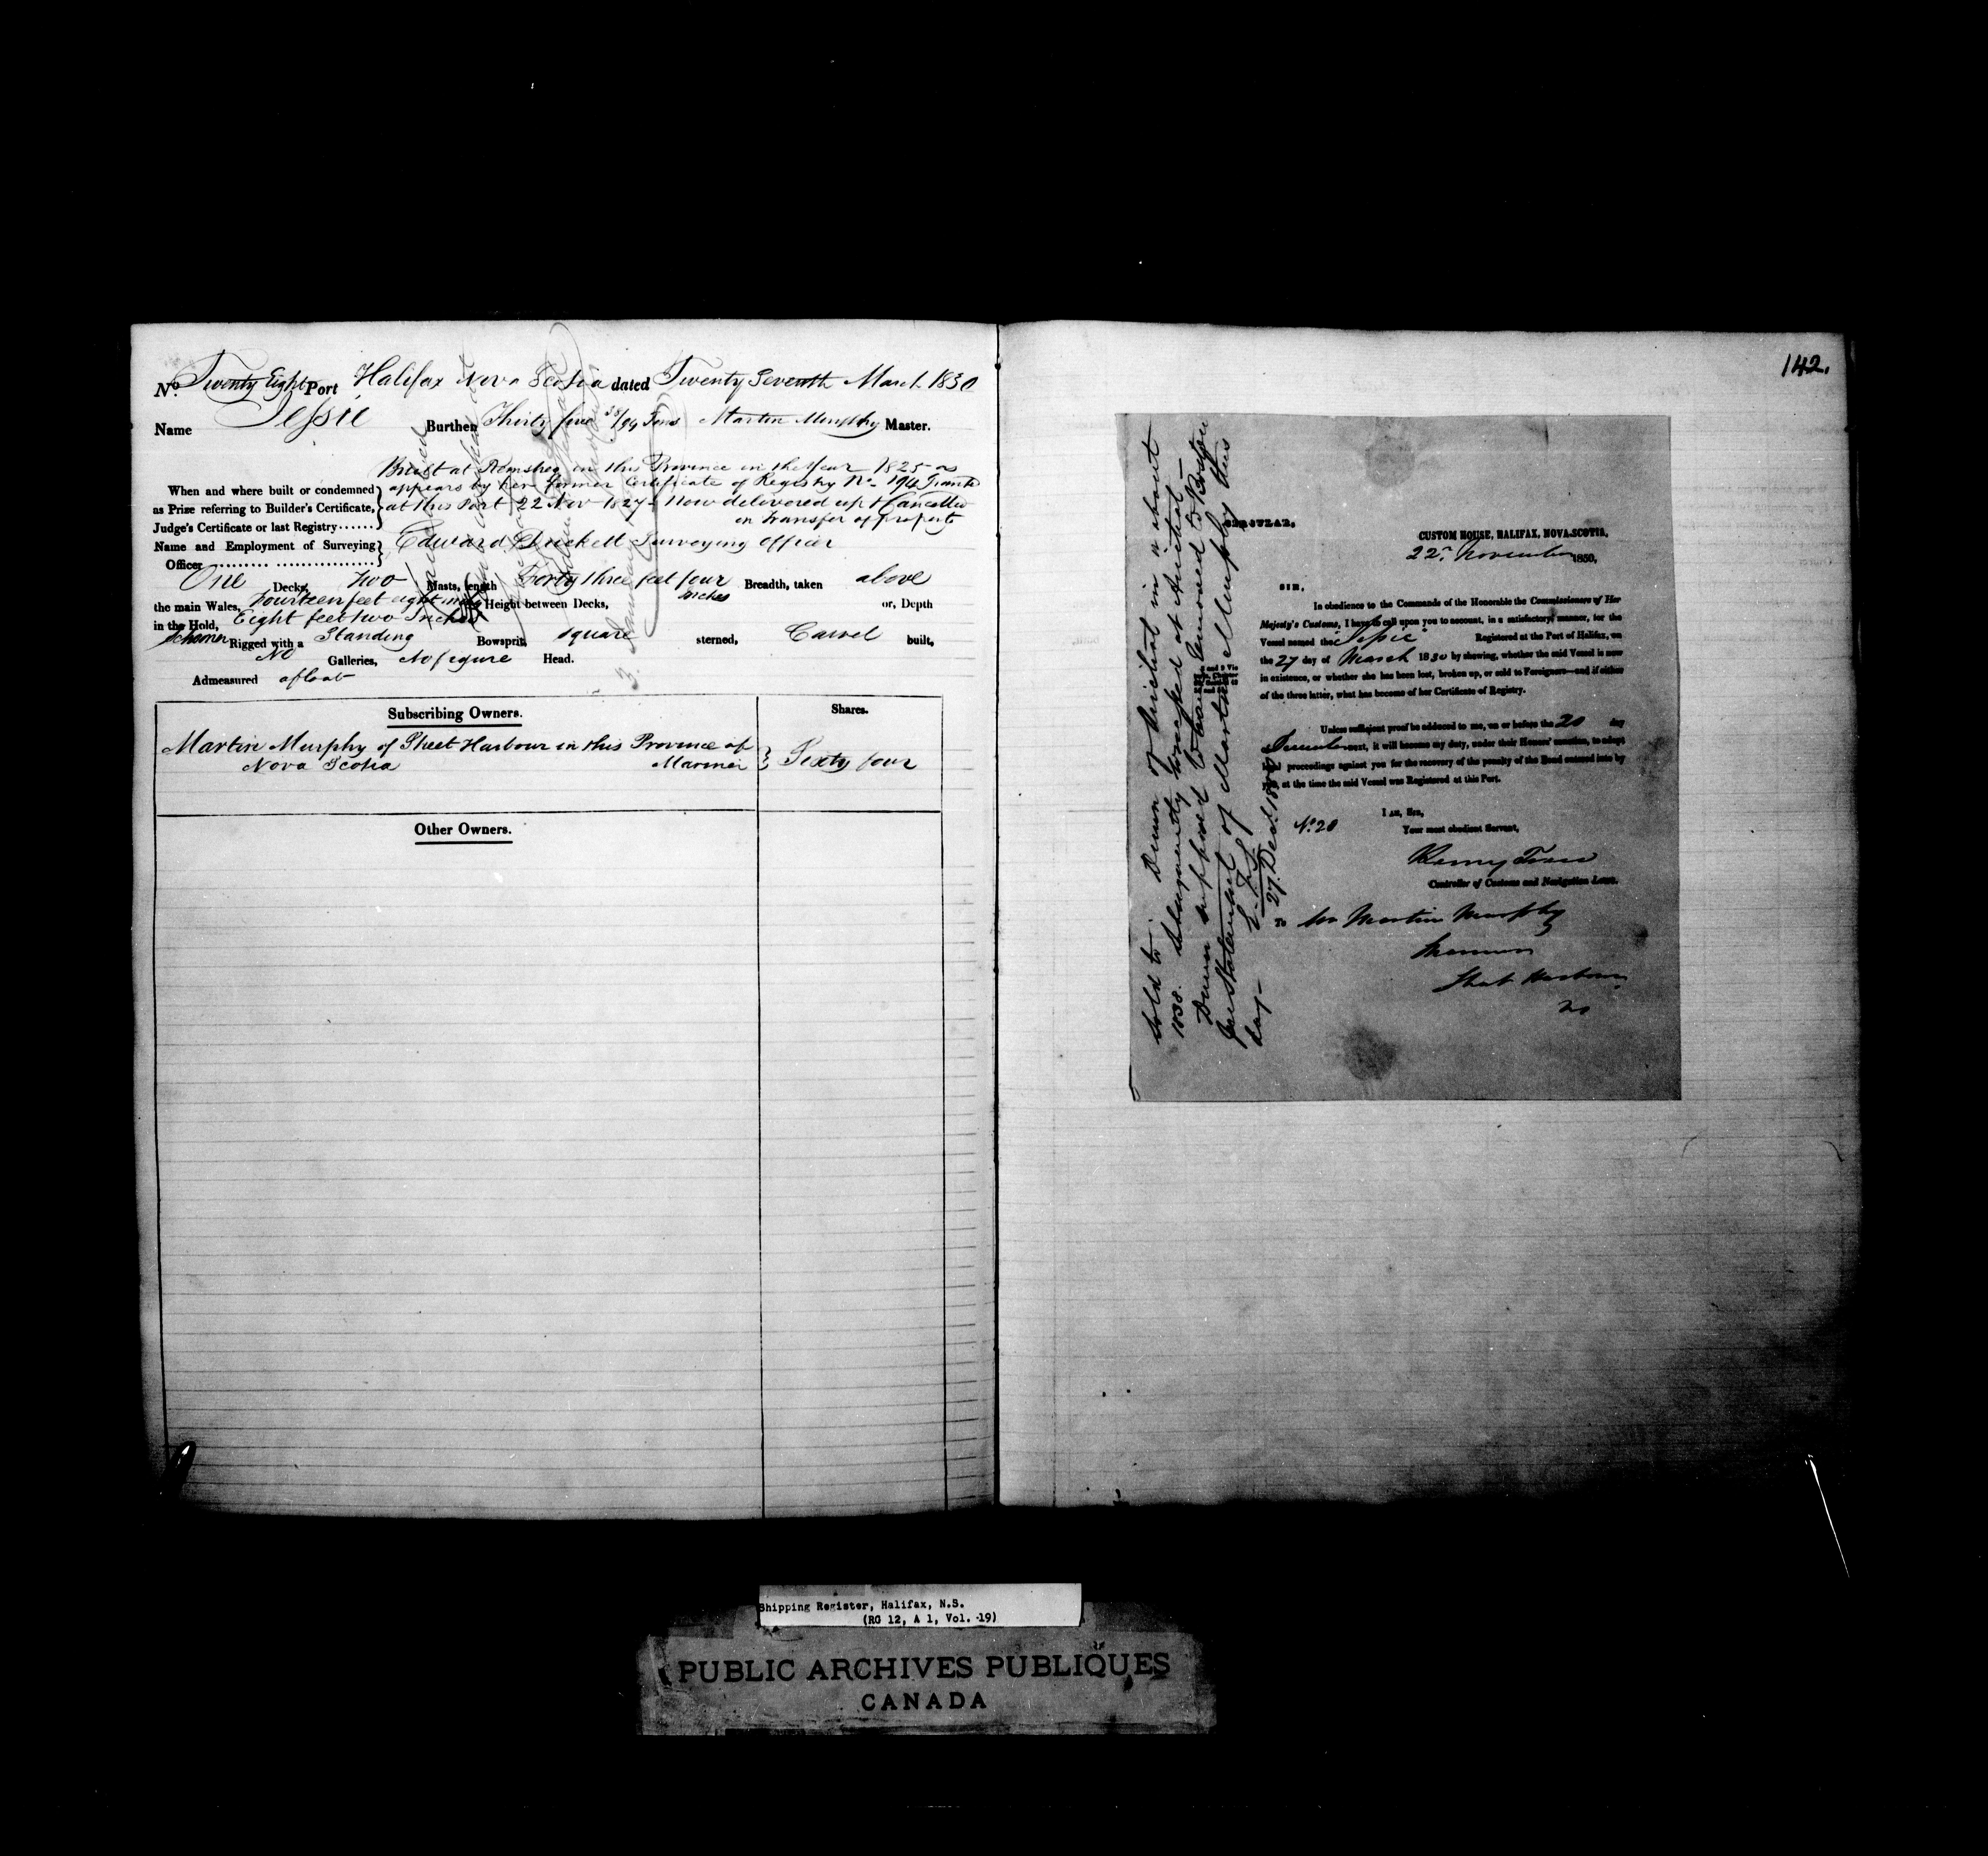 No. Twenty Eight Port Halifax Nova Scotia dated Twenty Seventh March 1830
Name Jessie Burthen Thirty five 38/94 Tons Martin Murphy Master.
Built at Remsheg in this Province in the Year 1825 as
When and where built or condemned appears by her former Certificate of Registry No. 194 Granted
as Prize referring to Builder's Certificate, at this Port 22 Nov 1827 - Now delivered up & Cancelled
Judge's Certificate or last Registry...... on transfer of property
Name and Employment of Surveying Edward Surveying Officer
Officer
One Decks, Two Masts, length Forty three feet four Inches Breadth, taken above
the main Wales, Fourteen feet eight Height between Decks, or, Depth
in the Hold, Eight feet two Inches
Schooner Rigged with a Standing Bowsprit, square sterned, Carvel built,
No Galleries, No figure Head.
Admeasured afloat
Subscribing Owners. Shares.
Martin Murphy of Sheet Harbour in this Province of
Nova Scotia Mariner Sixty four
Other Owners.
142.
CIRCULAR.
CUSTOM HOUSE, HALIFAX, NOVA-SCOTIA,
22nd November 1850,
SIR,
In obedience to the Commands of the Honorable the Commissioners of Her
Majesty's Customs, I have to call upon you to account, in a satisfactory manner, for the
Vessel named the Jessie Registered at the Port of Halifax, on
the 27 day of March 1830 by showing, whether the said Vessel is now
in existence, or whether she has been lost, broken up, or sold to Foreigners—and if either
of the three latter, what has become of her Certificate of Registry.
Unless sufficient proof be adduced to me, on or before the 20 day
December next, it will become my duty, under their Honors' sanction, to adopt
legal proceedings against you for the recovery of the penalty of the Bond entered into by
you, at the time the said Vessel was Registered at this Port.
I am, Sir,
No. 20 Your most obedient Servant,
Controller of Customs and Navigation Laws.
To Mr Martin Murphy
Mariner
Sheet Harbour
NS
Sold to Dunn of Arichat in or about
1838. Subsequently wrecked at Arichat -
Dunn supposed to have removed to Boston
per Statement of Martin Murphy this
day -
27 Dec. 1850
Shipping Register, Halifax, N.S.
(RG 12, A 1, Vol. 19)
PUBLIC ARCHIVES PUBLIQUES
CANADA